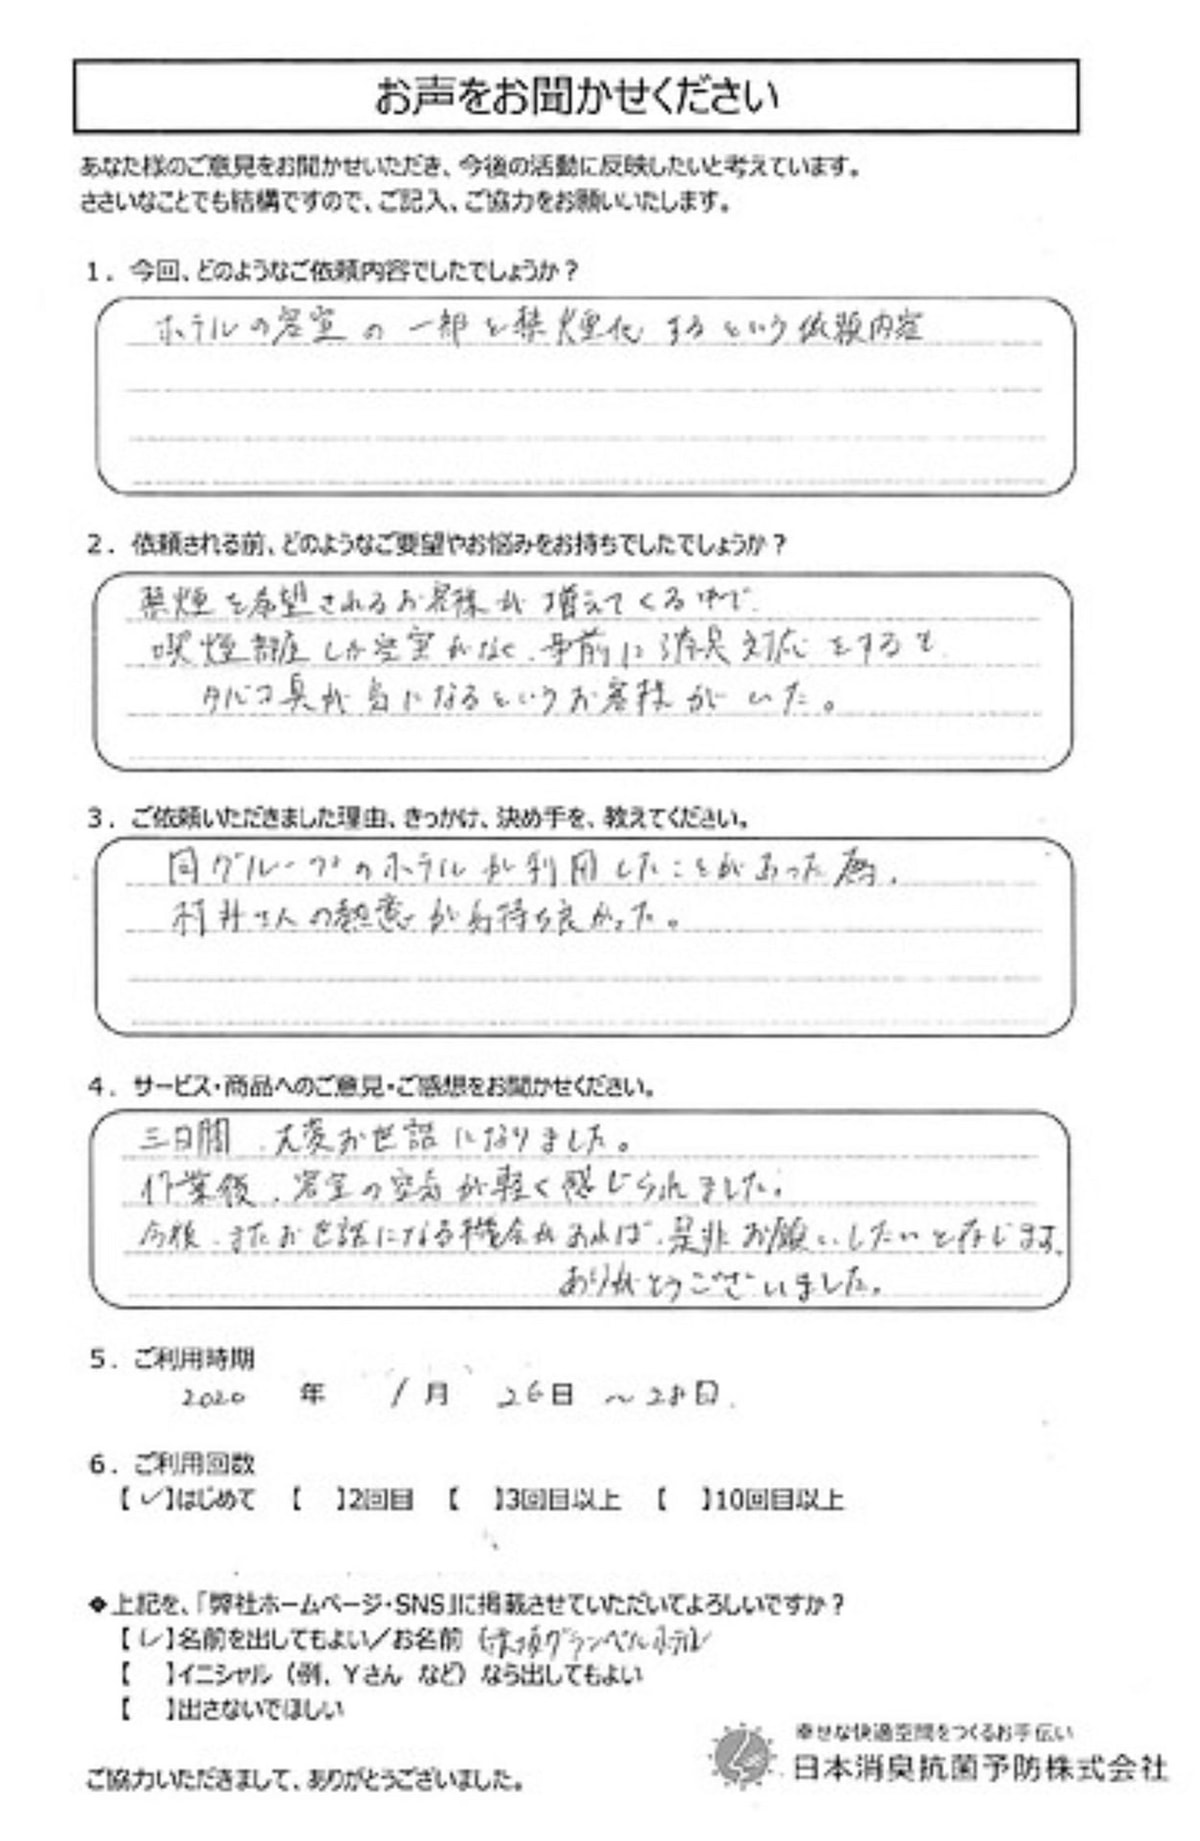 お声をお聞かせください
あなた様のご意見をお聞かせいただき、今後の活動に反映したいと考えています。
ささいなことでも結構ですので、ご記入、ご協力をお願いいたします。
1．今回、どのようなご依頼内容でしたでしょうか？
ホテルの客室の一部を禁煙化するという依頼内容
2．依頼される前、どのようなご要望やお悩みをお持ちでしたでしょうか？
禁煙を希望されるお客様が増えてくる中で、
喫煙部屋しか空室がなく、事前に消臭対応をするも
タバコ臭が気になるというお客様がいた。
3．ご依頼いただきました理由、きっかけ、決め手を、教えてください。
同グループのホテルが利用したことがあった為。
村井さんの熱意が気持ち良かった。
4．サービス・商品へのご意見・ご感想をお聞かせください。
三日間、大変お世話になりました。
作業後、客室の空気が軽く感じられました。
今後、またお世話になる機会があれば、是非お願いしたいと存じます。
ありがとうございました。
5．ご利用時期
2020 年 1月 26日 ～28日.
6．ご利用回数
【✓】はじめて 【 】2回目 【 】3回目以上 【 】10回目以上
❖上記を、「弊社ホームページ・SNS」に掲載させていただいてよろしいですか？
【✓】名前を出してもよい／お名前（赤坂グランベルホテル
【 】イニシャル（例．Yさん など）なら出してもよい
【 】出さないでほしい
幸せな快適空間をつくるお手伝い
日本消臭抗菌予防株式会社
ご協力いただきまして、ありがとうございました。